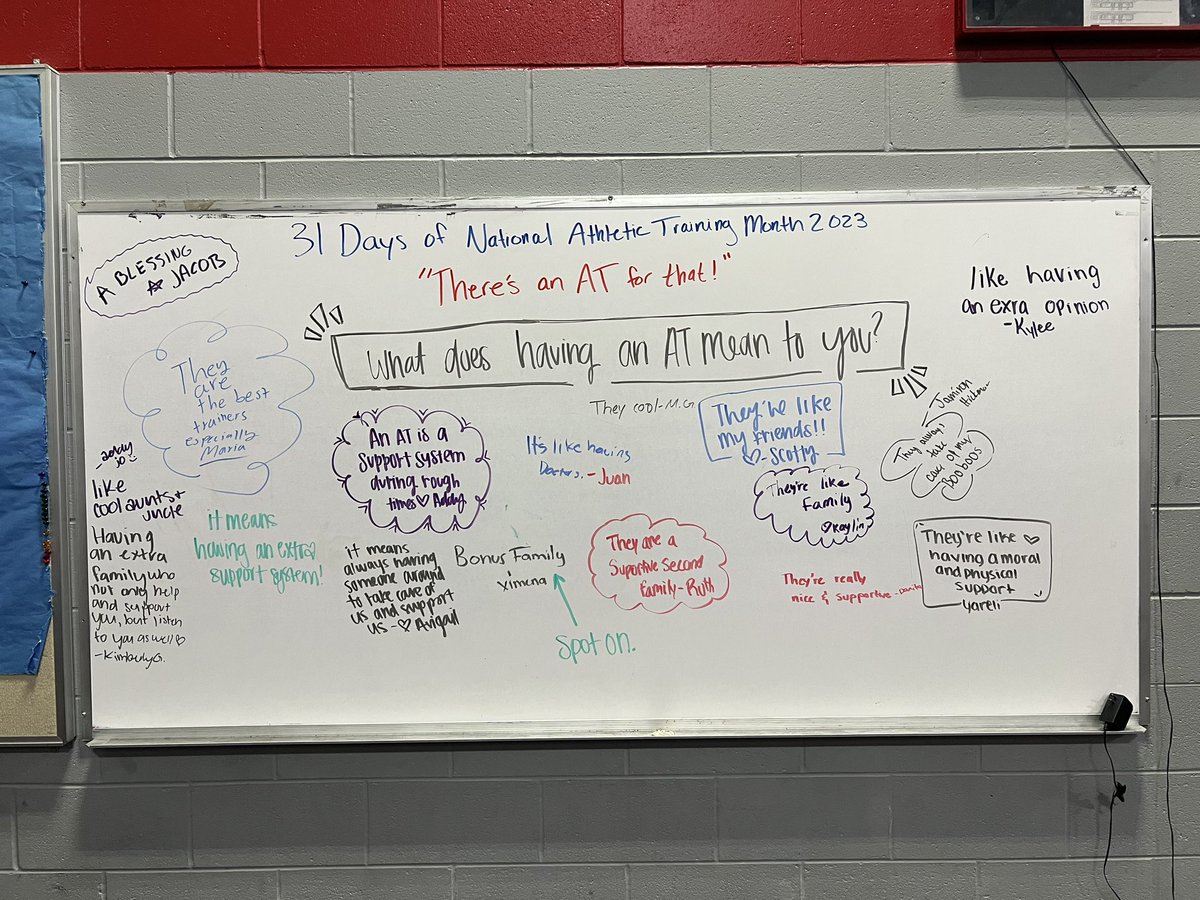 31 Days of National Athletic Training Month 2023
"There's an AT for that!"
What does having an AT mean to you?
A BLESSING
☆ JACOB
like having
an exra opinion
-Kylee
They
are
the best
trainers
especially
Maria
They cool-M.G.
They're like
my friends!!
♡-Scotty
-Jamiron
They always
take
care of my
Boo boos
An AT is a
Support system
during rough
times ♡ Adday
It's like having
Doctors. -Juan
They're like
Family
♡Kaylin
like
cool aunts +
uncle
Having
an extra
family who
not only help
and support
you, but listen
to you as well♡
-Kimberly G.
it means
having an extra
support system!
it means
always having
someone around
to take care of
us and support
us -♡ Avigail
Bonus Family
ximena
Spot on.
They are a
Suportive Second
Family-Ruth
They're really
nice & supportive
They're like ♡
having a moral
and physical
support
yareli